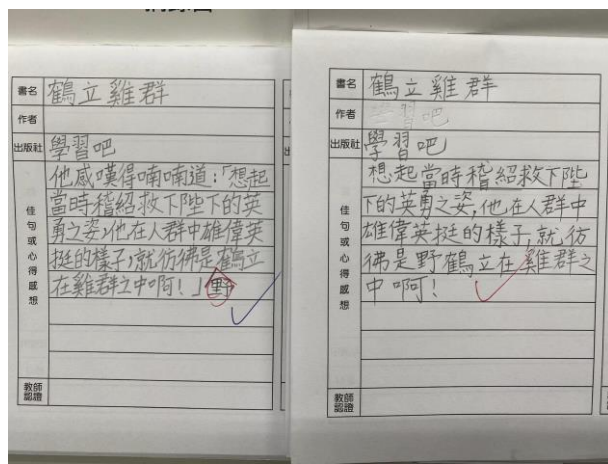 書名
鶴立雞群
作者
出版社
學習吧
佳句或心得感想
他感嘆得喃喃道:「想起
當時稽紹救下陛下的英
勇之姿,他在人群中雄偉英
挺的樣子,就彷彿是鶴立
在雞群之中啊!」野
教師
認證
書名
鶴立雞群
作者
學習吧
出版社
學習吧
佳句或心得感想
想起當時稽紹救下陛
下的英勇之姿,他在人群中
雄偉英挺的樣子,就彷
彿是野鶴立在雞群之
中啊!
教師
認證